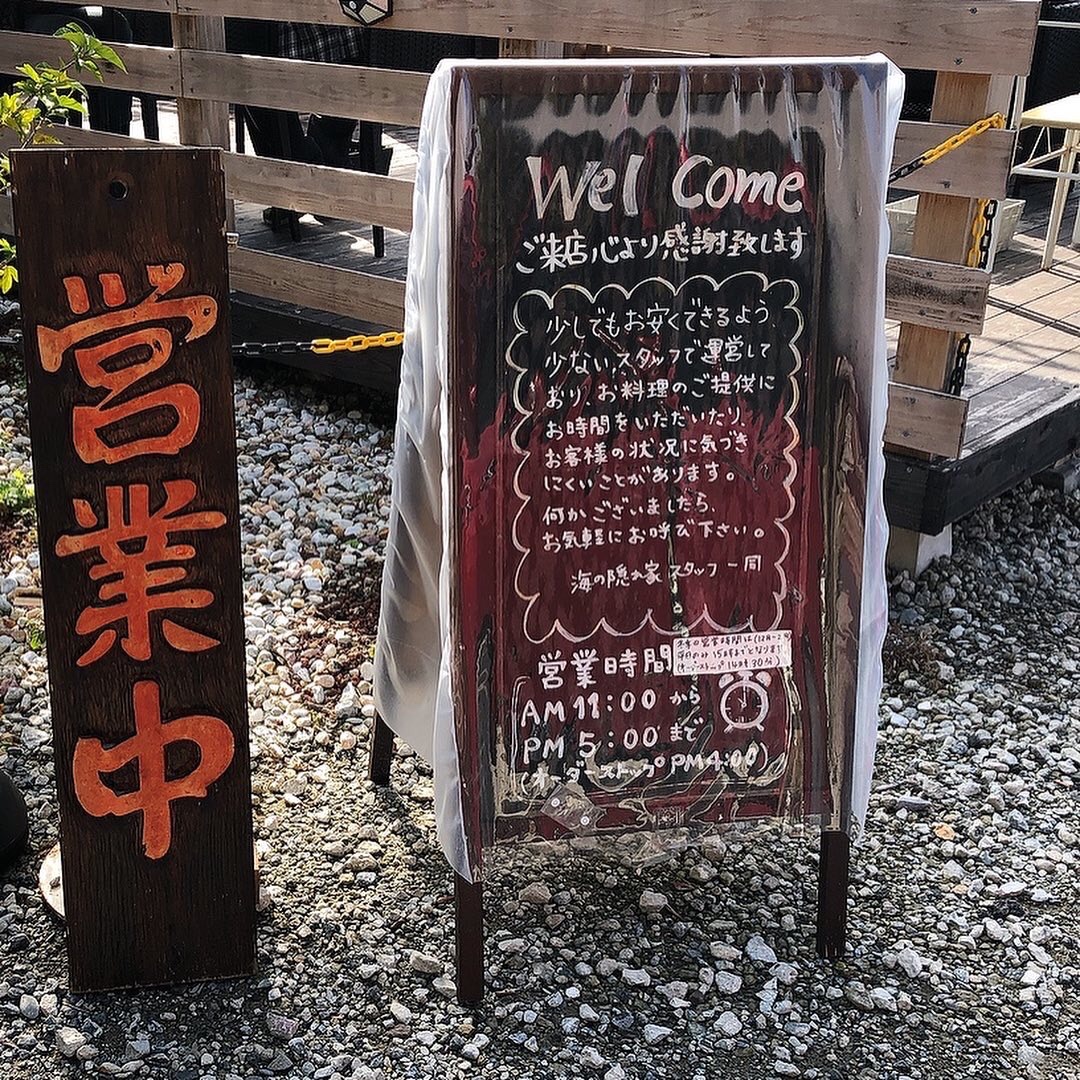 営業中
Wel Come
ご来店心より感謝致します
少しでもお安くできるよう、
少ないスタッフで運営して
おり、お料理のご提供に
お時間をいただいたり、
お客様の状況に気づき
にくいことがあります。
何かございましたら、
お気軽にお呼び下さい。
海の隠れ家 スタッフ一同
営業時間
冬季の営業時間は(12月~2月
平日のみ 15時までとなります
(オーダーストップ 14時30分)
AM 11:00 から
PM 5:00 まで
(オーダーストップ PM4:00)